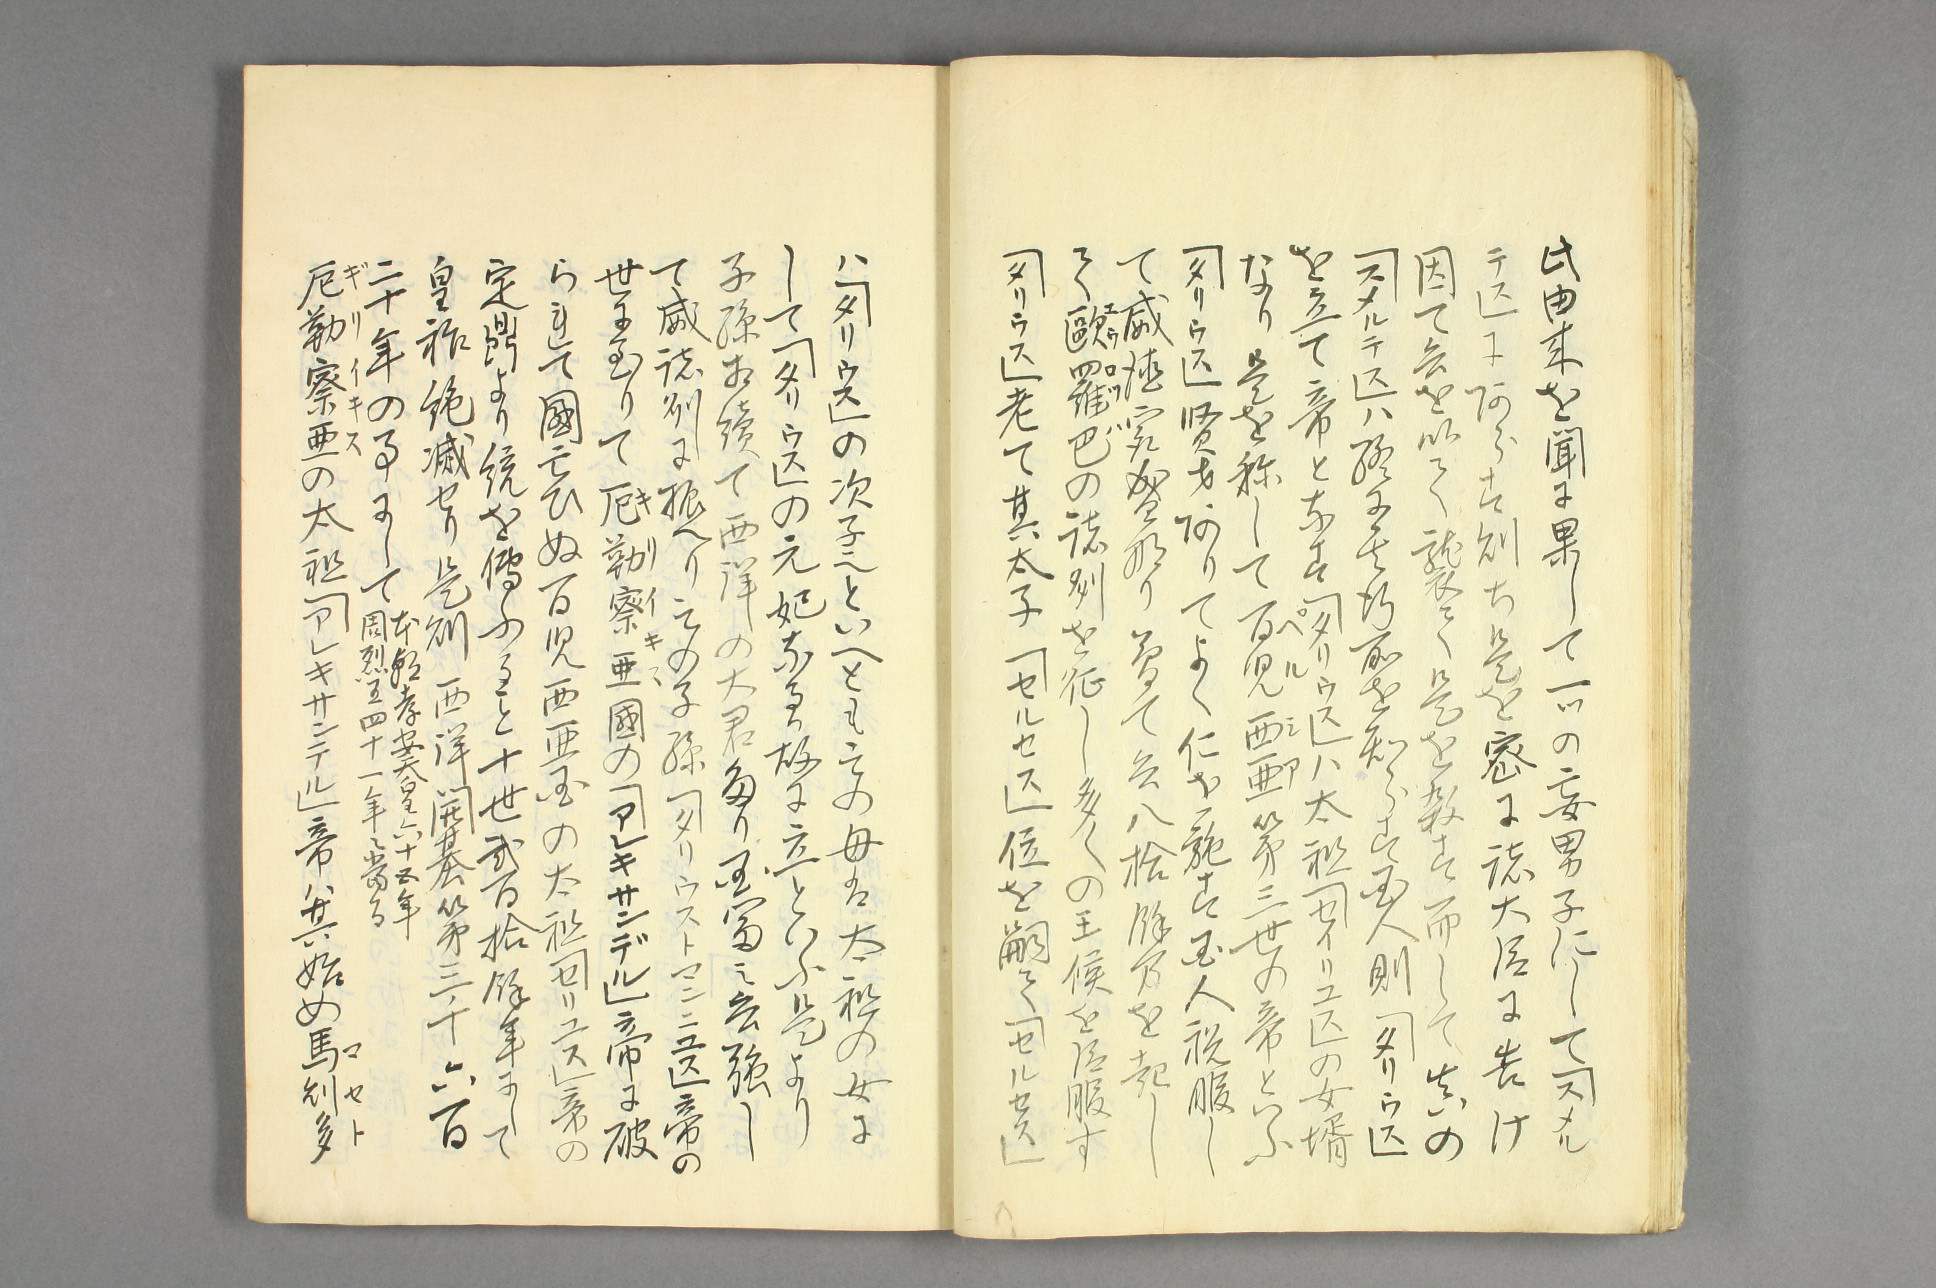 此由来を聞に果して一ツの妄男子にして「スメル
テス」にあらす則ち是を密に諸大臣に告け
因て兵を以て襲て是を殺す而して其の
「スメルテス」ハ終に其行所を知らす国人則「タリウス」
を立て帝と為す「タリウス」ハ太祖「セイリユス」の女壻
なり是を称して百児西亜第三世の帝といふ
ペルシア
「タリウス」賢才ありてよく仁を施す国人税服し
て威徳益盛なり曽て兵八拾餘万を起し
て歐羅巴の諸州を征し多くの王侯を臣服す
ヱウロツパ
「タリウス」老て其太子「セルセス」位を嗣て「セルセス」
ハ「タリウス」の次子といへとも其の母は太祖の女に
して「タリウス」の元妃なる故に立といふ是より
子孫相續て西洋の大君たり国富ミ兵強し
て威諸州に振へり其の子孫「タリウストマンニユス」帝の
世に至りて厄勒察亜國の「アレキサンデル」帝に破
ギリイキス
られて國亡ひぬ百児西亜国の太祖「セリユス」帝の
定鼎より統を傳ふること十世弐百拾餘年にして
皇祚絶滅せり是則西洋開基第三千六百
二十年の事にして
本朝孝安天皇六十五年
周烈王四十一年ニ當る
厄勒察亜の太祖「アレキサンテル」帝ハ其始め馬則多
ギリイキス
マセト